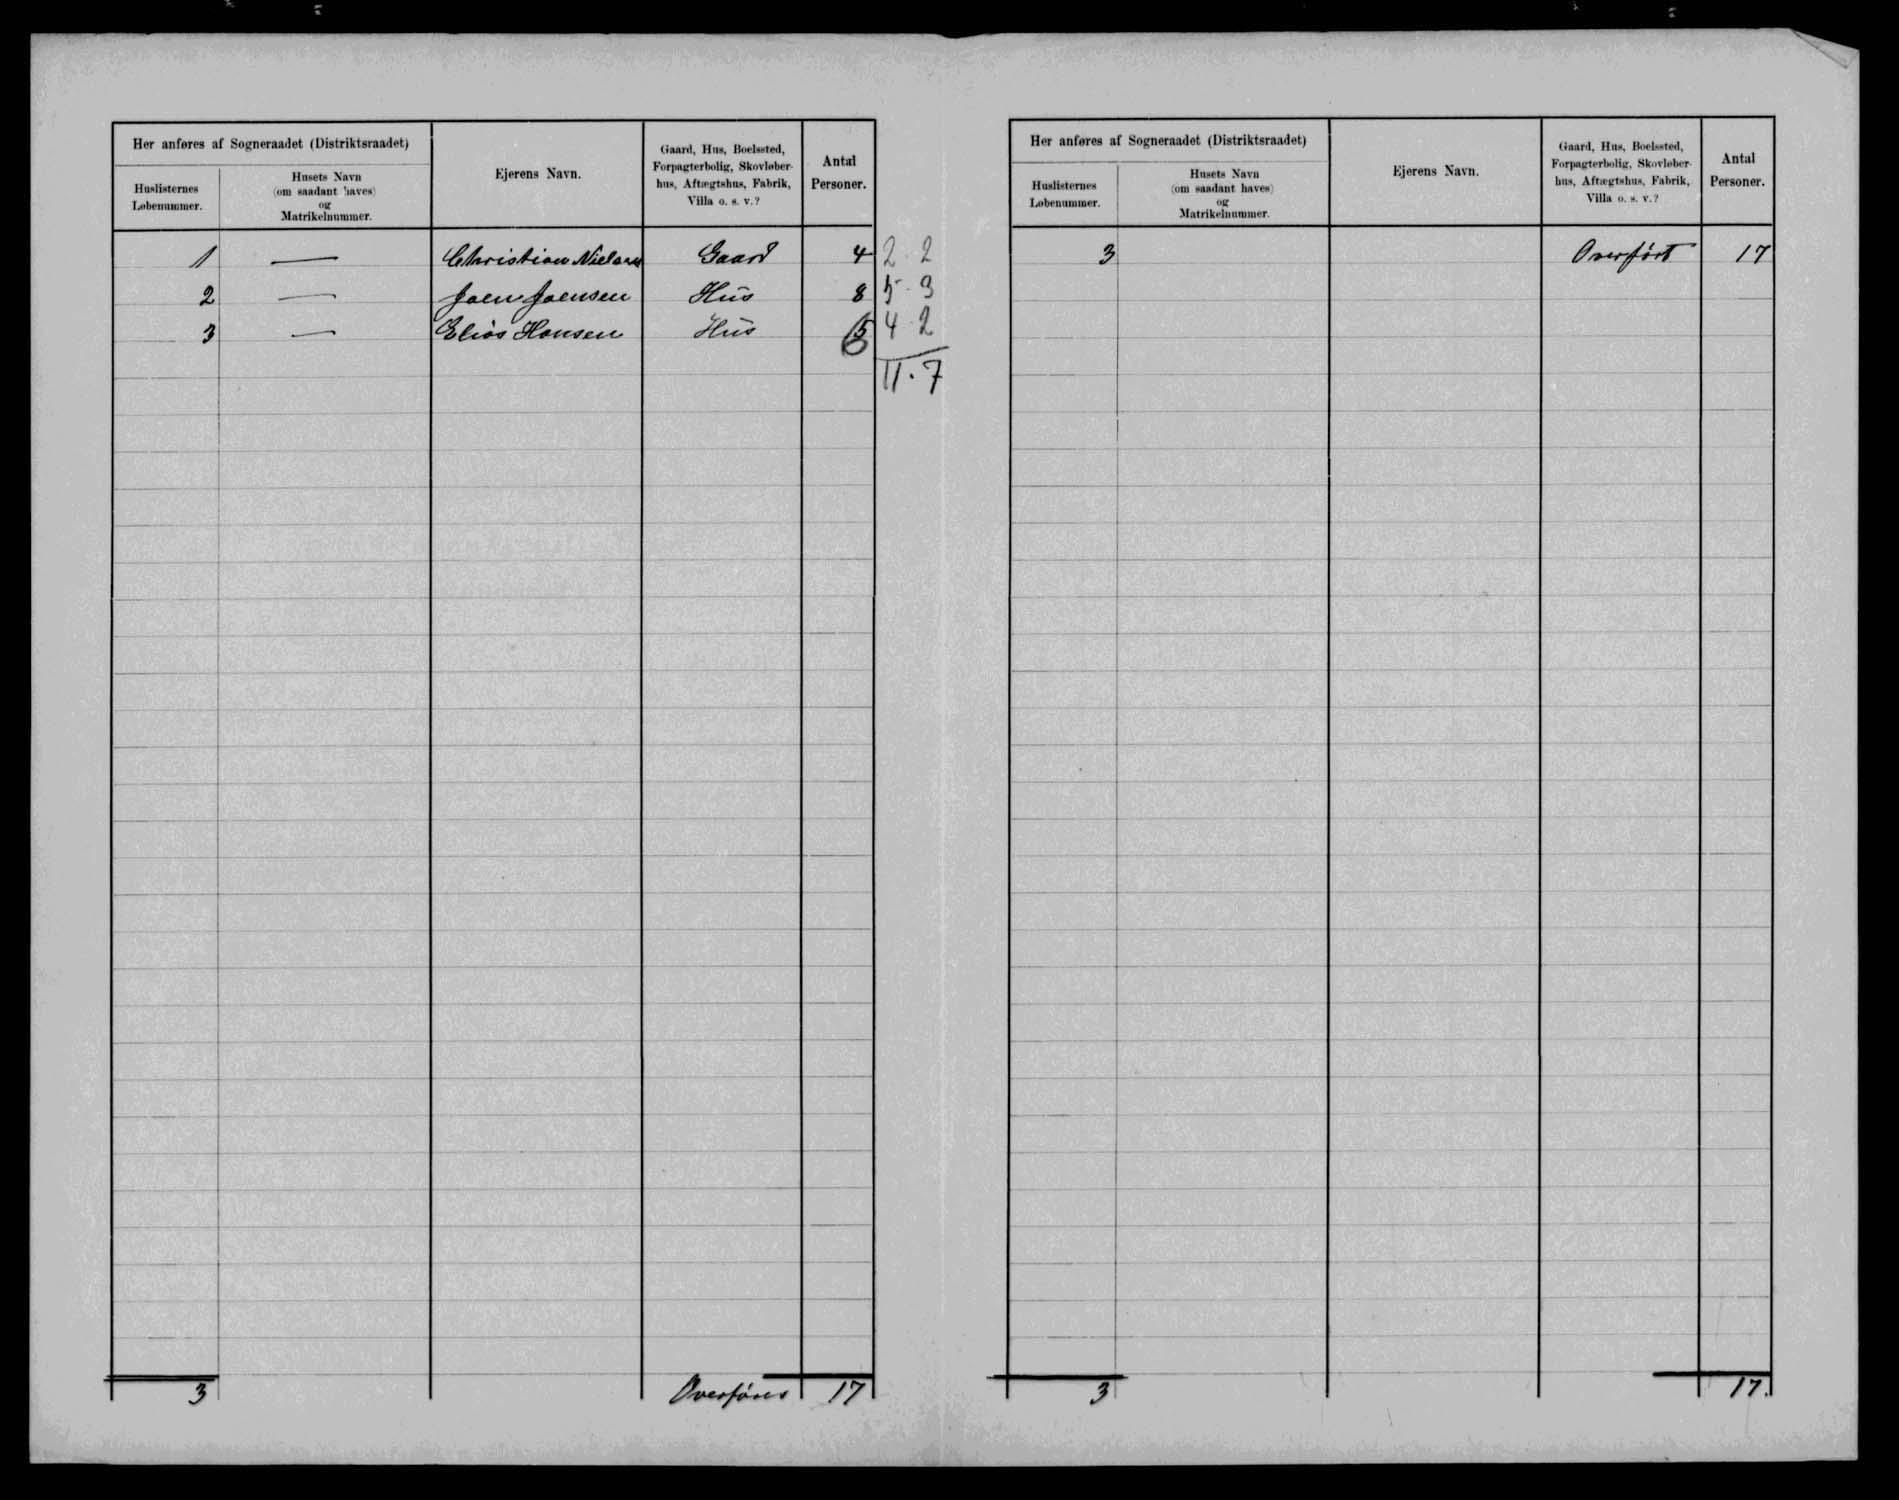 Her anføres af Sogneraadet (Distriktsraadet)
Huslisternes
Løbenummer.
Husets Navn
(om saadant haves)
og
Matrikelnummer.
Ejerens Navn.
Gaard, Hus, Boelssted,
Forpagterbolig, Skovløber-
hus, Aftægtshus, Fabrik,
Villa o. s. v.?
Antal
Personer.
1 — Christian Nielsen Gaard 4 2 2
2 — Joen Joensen Hus 8 5 3
3 — Elias Hansen Hus 5 4 2
11 . 7
3 Overføres 17
Her anføres af Sogneraadet (Distriktsraadet)
Huslisternes
Løbenummer.
Husets Navn
(om saadant haves)
og
Matrikelnummer.
Ejerens Navn.
Gaard, Hus, Boelssted,
Forpagterbolig, Skovløber-
hus, Aftægtshus, Fabrik,
Villa o. s. v.?
Antal
Personer.
3 Overført 17
3 17.